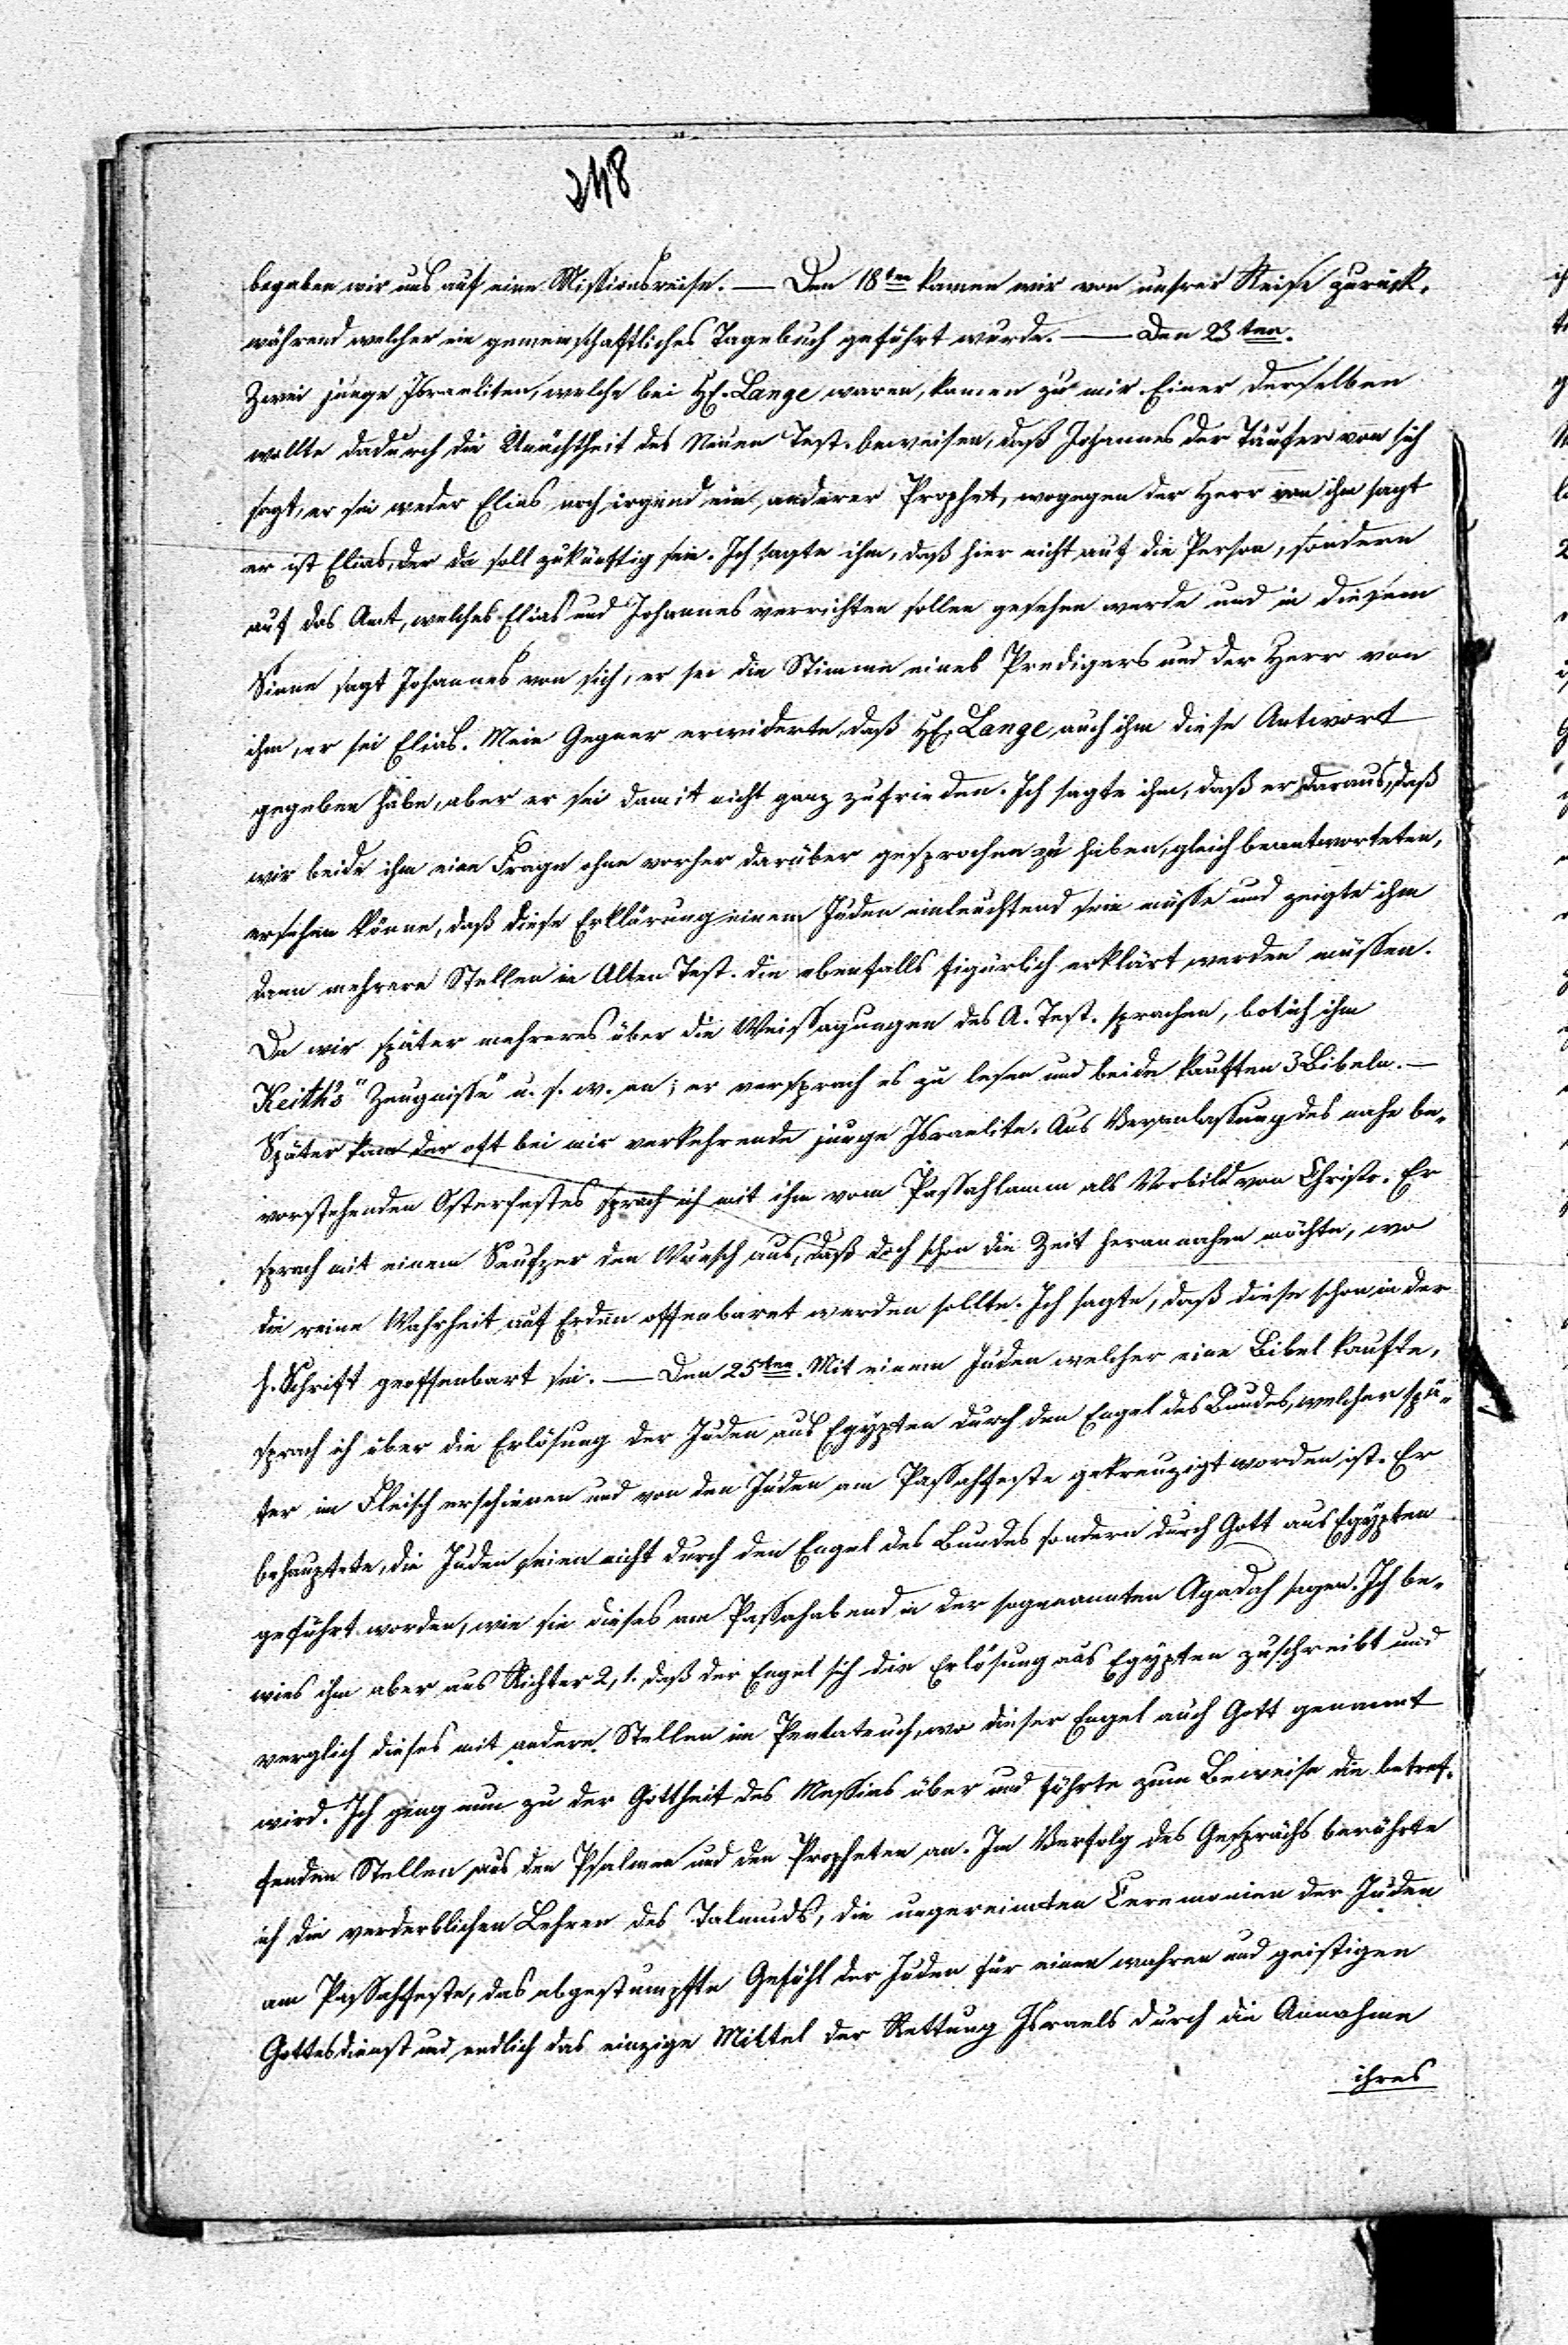 248
begaben wir uns auf eine Missionsreise. — Den 18ten kamen wir von unsrer Reise zurück,
während welcher ein gemeinschaftliches Tagebuch geführt wurde. — Den 23ten.
Zwei junge Israeliten, welche bei H. Lange waren, kamen zu mir. Einer derselben
wollte dadurch die Unächtheit des Neuen Test. beweisen, daß Johannes der Täufer von sich
sagt, er sei weder Elias noch irgend ein anderer Prophet, wogegen der Herr von ihm sagt
er ist Elias, der da soll zukünftig sein. Ich sagte ihm, daß hier nicht auf die Person, sondern
auf das Amt, welches Elias und Johannes verrichten sollen gesehen werde und in diesem
Sinne sagt Johannes von sich, er sei die Stimme eines Predigers und der Herr von
ihm, er sei Elias. Mein Gegner erwiderte, daß H. Lange auch ihm diese Antwort
gegeben habe, aber er sei damit nicht ganz zufrieden. Ich sagte ihm, daß er daraus, daß
wir beide ihm eine Frage ohne vorher darüber gesprochen zu haben, gleich beantworteten,
ersehen könne, daß diese Erklärung einem Juden einleuchtend sein müsse und zeigte ihm
dann mehrere Stellen in Alten Test. die ebenfalls figürlich erklärt werden müssen.
Da wir später mehreres über die Weissagungen des A. Test. sprachen, bot ich ihm
Keith's "Zeugnisse" u. s. w. an; er versprach es zu lesen und beide kauften 3 Bibeln. —
Später kam der oft bei mir verkehrende junge Israelite. Aus Veranlassung des nahe be-
vorstehenden Osterfestes sprach ich mit ihm vom Passahlamm als Vorbild von Christo. Er
sprach mit einem Seufzer den Wunsch aus, daß doch schon die Zeit herannahen möchte, wo
die reine Wahrheit auf Erden offenbaret werden sollte. Ich sagte, daß diese schon in der
h. Schrift geoffenbart sei. — Den 25ten. Mit einem Juden welcher eine Bibel kaufte,
sprach ich über die Erlösung der Juden aus Egypten durch den Engel des Bundes, welcher spä-
ter im Fleisch erschienen und von den Juden am Passahfeste gekreuzigt worden ist. Er
behauptete, die Juden seien nicht durch den Engel des Bundes sondern durch Gott aus Egypten
geführt worden, wie sie dieses am Passahabend in der sogenannten Agadah sagen. Ich be-
wies ihm aber aus Richter 2, 1. daß der Engel sich die Erlösung aus Egypten zuschreibt und
verglich dieses mit andern Stellen im Pentateuch, wo dieser Engel auch Gott genannt
wird. Ich ging nun zu der Gottheit des Messias über und führte zum Beweise die betref-
fenden Stellen aus den Psalmen und den Propheten an. Im Verfolg des Gesprächs berührte
ich die verderblichen Lehren des Talmuds, die ungereimten Ceremonien der Juden
am Passahfeste, das abgestumpfte Gefühl der Juden für einen wahren und geistigen
Gottesdienst und endlich das einzige Mittel der Rettung Israels durch die Annahme
ihres